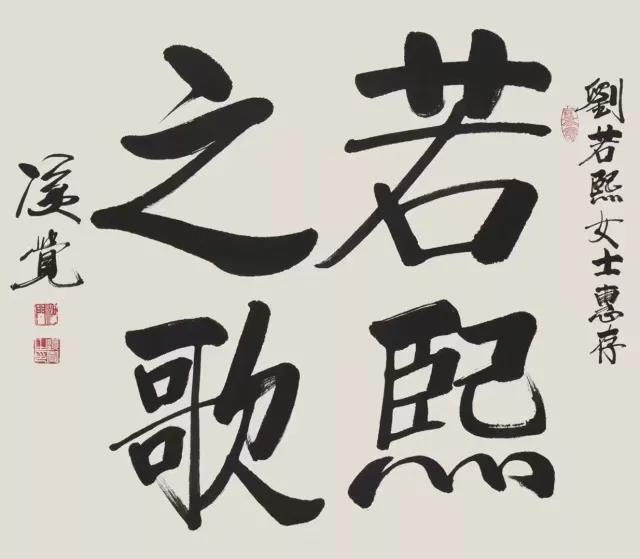 劉若熙女士惠存
若熙
之歌